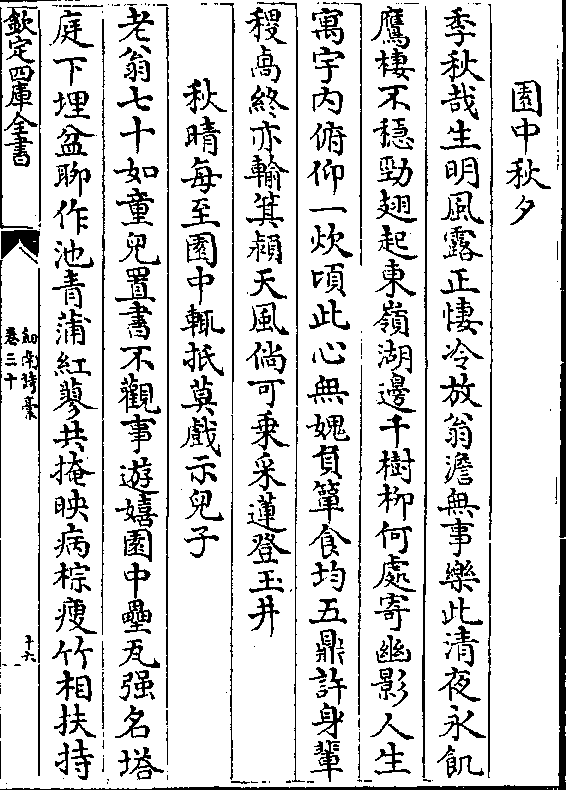 園中秋夕
季秋哉生明風露正悽冷放翁澹無事樂此清夜永飢
鷹棲不穩勁翅起東嶺湖邊千樹柳何處寄幽影人生
寓宇内俯仰一炊頃此心無媿負簞食均五鼎許身輩
稷卨終亦輸箕潁天風倘可乗采蓮登玉井
秋晴每至園中輒抵莫戲示兒子
老翁七十如童兒置書不觀事遊嬉園中壘瓦强名塔
庭下埋盆聊作池青蒲紅蓼共掩映病棕瘦竹相扶持
欽定四庫全書
劍南詩稾
卷三十
十六